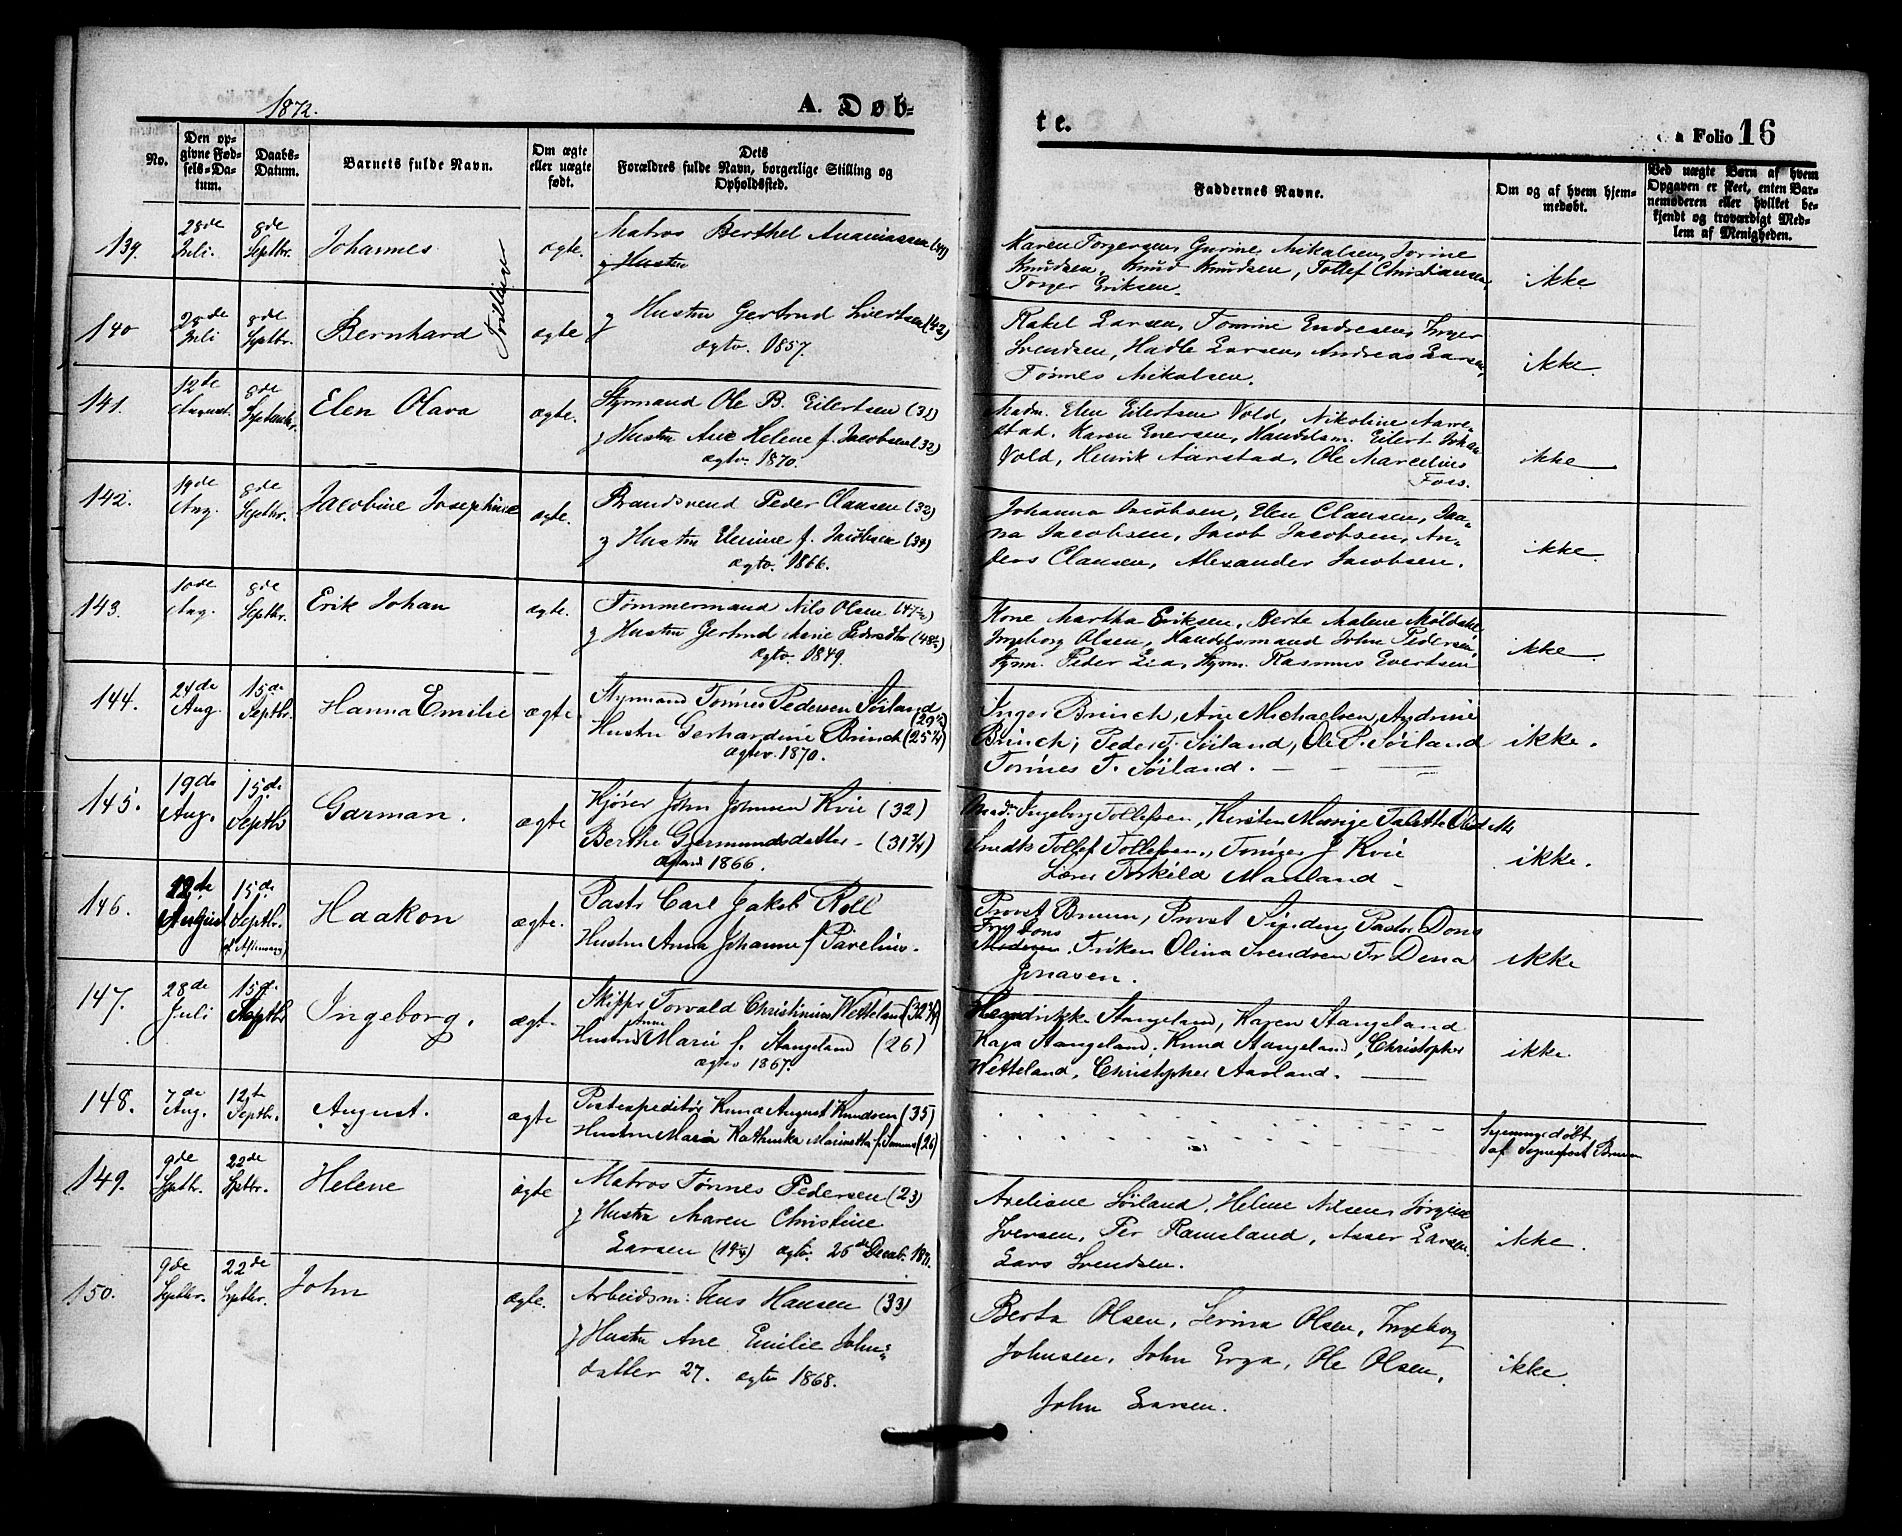 1872.
A. Døb-
te.
a Folio 16
No.
Den op-
givne Fød-
sels-Da-
tum.
Daabs-
Datum.
Barnets fulde Navn.
Om ægte
eller uægte
født.
Dets
Forældres fulde Navn, borgerlige Stilling og
Opholdssted.
Faddernes Navne.
Om og af hvem hjem-
medøbt.
Ved uægte Børn af hvem
Opgaven er skeet, enten Bar-
nemoderen eller hvilket be-
kjendt og troværdigt Med-
lem af Menigheden.
139.
28de
Juli.
8de
Septbr.
Johannes
ægte.
Matros Berthel Ananiassen (44)
g Hustru
Karen Torgersen, Gurine Mikalsen, Jorine
Knudsen, Knud Knudsen, Tollef Christiansen,
Torger Eriksen.
ikke
Tvillinger
140
28de
Juli
8de
Septbr.
Bernhard
ægte
g Hustru Gertrud Sivertsen (42)
ægtv. 1857.
Rakel Larsen, Tomine Endresen, Inger
Svendsen, Hadle Larsen, Andreas Larsen,
Tønnes Mikalsen.
ikke.
141.
12de
August.
8de
Septembr.
Elen Olava
ægte.
Styrmand Ole B. Eilertsen (31)
g Hustru Ane Helene f. Jacobsen (32)
ægtv. 1870.
Madm. Elen Eilertsen Vold, Nikoline Aarre-
stad, Karen Enersen, Handelsm. Eilert Johan
Vold, Henrik Aarstad, Ole Marcelius
Foss.
ikke
142.
19de
Aug.
8de
Septbr.
Jacobine Josephine
ægte.
Brandsvend Peder Clausen (32)
g Hustru f. Jacobsen (34)
ægtv. 1866.
Johanna Jacobsen, Elen Clausen, Jaa-
na Jacobsen, Jacob Jacobsen, An-
ders Clausen, Alexander Jacobsen.
ikke.
143.
10de
Aug.
8de
Septbr.
Erik Johan
ægte.
Tømmermand Nils Olsen (47½)
g Hustru Gertrud Marie Pedersdtr (48½)
ægtv. 1849.
Kone Martha Eriksen, Berte Malene
Ingeborg Olsen, Handelsmand John Pedersen,
Stym. Peder Lia, Stym. Rasmus Evertsen
ikke.
144.
24de
Aug.
15de
Septbr.
Hanna Emilie
ægte
Styrmand Tønnes Pedersen Söiland
(29½)
Hustru Gerhardine Brinch (25¼)
ægtev. 1870.
Inger Brinch, Ane Michaelsen, Andrine
Brinch, Peder T. Söiland, Ole P. Söiland
Tønnes T. Söiland.
ikke.
145.
19de
Aug.
15de
Septbr
Garman.
ægte
Kjører John Johnsen Kvie (32)
Berthe Gjermundsdatter (31¾)
1866.
Madm. Ingeborg Tollefsen, Kirsten
Tollef Tollefsen, Tønnes J. Kvie
Torkild Manland
ikke.
146.
12de
August
15de
Septbr.
Haakon
ægte.
Pastr Carl Jakob Roll
Hustru Anna Johanne f Pavelius.
Provst Bruun, Provst Sinding Pastor Dons
Fru Dons
Frøken Olina Svendsen Fr. Dena
Jonasen.
ikke
147.
28de
Juli
15de
Septbr
Ingeborg.
ægt.
Skipper Torvald Christinius Wetteland (32¾)
Hustru Anne Marie f. Stangeland (26)
ægtev 1867.
Hendrikke Stangeland, Karen Stangeland
Kaja Stangeland, Knud Stangeland, Christopher
Wetteland, Christopher Aarland.
ikke.
148.
7de
Aug.
12te
Septbr.
August.
ægte
Postexpeditør August Knudsen (35)
Hustru Maria Kathinka (26)
hjemmedöbt
af Sogneprest Bruun
149.
9de
Septbr.
22de
Septbr.
Helene
ægte
Matros Tønnes Pedersen (23)
g Hustru Maren Christine
Larsen (19¼) ægtv. 26de Decbr. 1871.
Axeliane Söiland, Helene Nilsen, Jörgine
Iversen, Per Ramsland, Asser Larsen
Lars Svendsen.
ikke.
150.
9de
Septbr.
22de
Septbr.
John
ægte.
Arbeidsm: Jens Hansen (33)
g Hustru Ane Emilie Johns-
datter 27. ægtv 1868.
Berta Olsen, Serina Olsen, Ingeborg
Johnsen, John Erga, Ole Olsen,
John Larsen.
ikke.